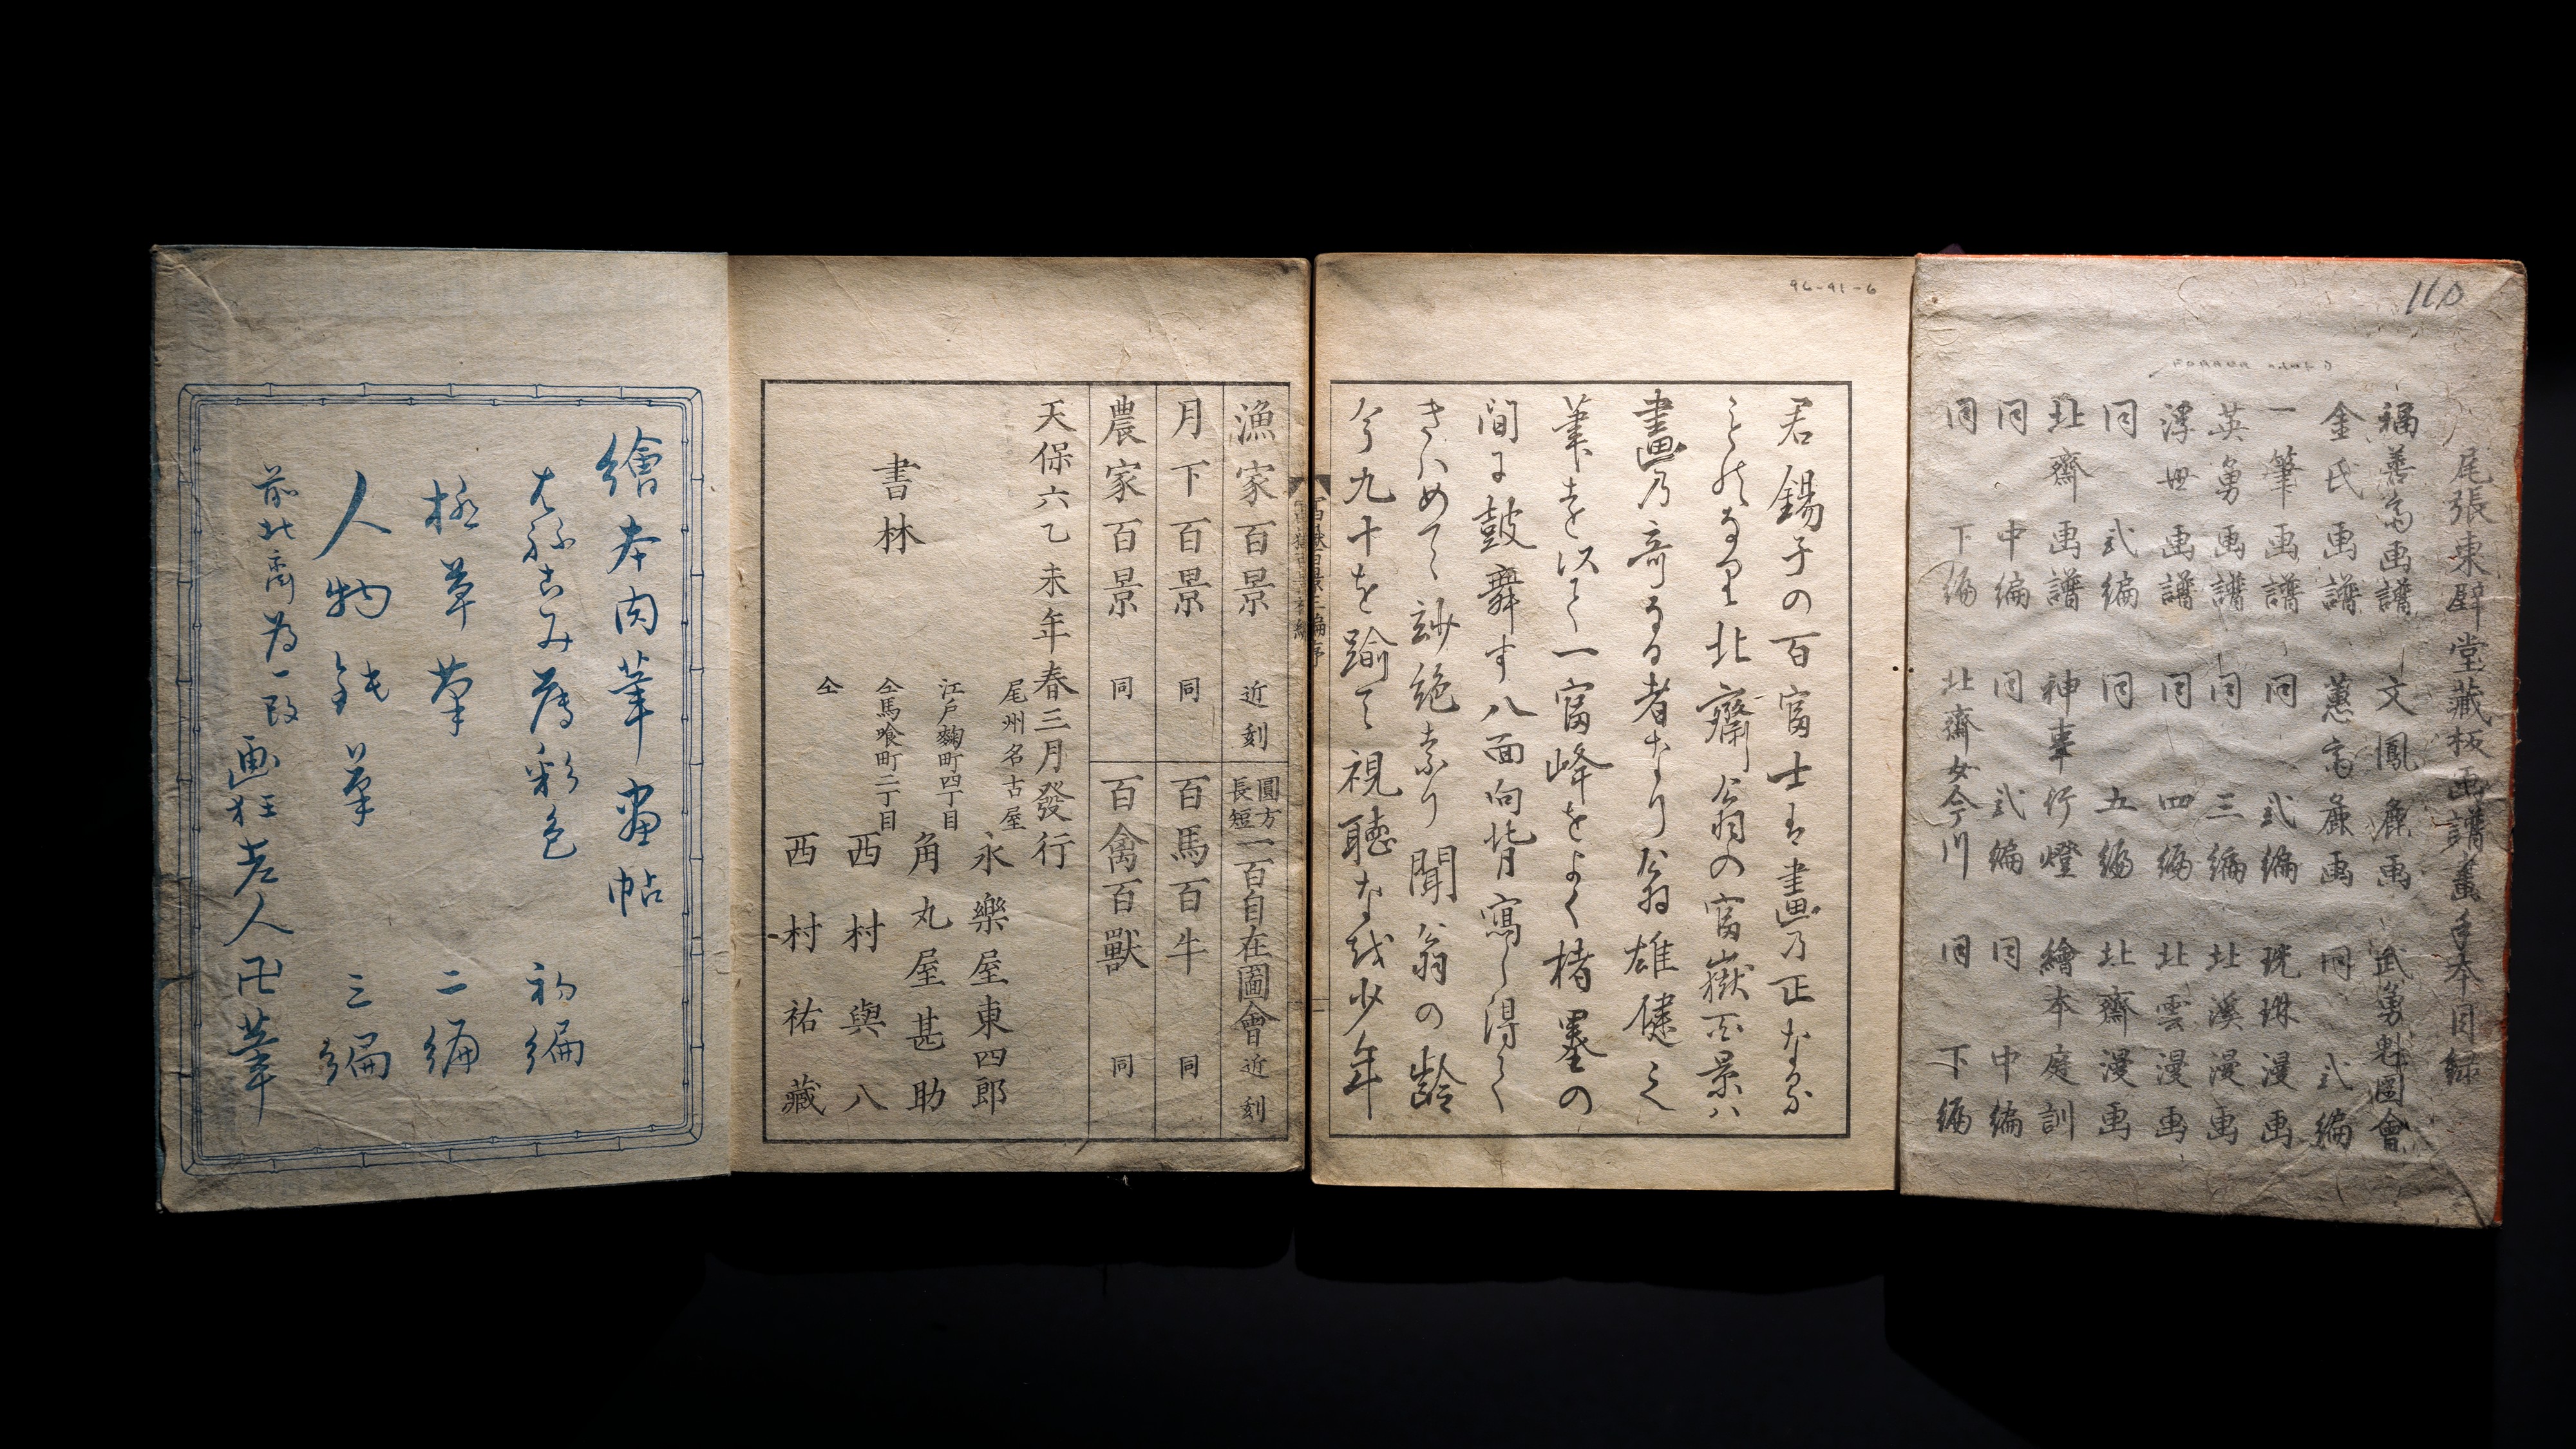 110
尾張東壁堂藏板画譜畫手本目録
福善斎画譜 文鳳麁画 武勇魁圖會
金氏画譜 蕙斎麁画 同 弐編
一筆画譜 同 弐編 琉球漫画
英勇画譜 同 三編 北溪漫画
浮世画譜 同 四編 北雲漫画
同 弐編 同 五編 北齋漫画
北齋画譜 神事行燈 繪本庭訓
同 中編 同 弐編 同 中編
同 下編 北齋女今川 同 下編
96-91-6
君錫子の百富士は畫乃正なる
ものなり北齋翁の富嶽百景ハ
畫乃奇なる者なり翁雄健之
筆を以て一富峰をよく楮墨の
間に鼓舞す八面向背寫し得て
きハめて妙絶なり聞翁の齢
今九十を踰て視聴なを少年
富嶽百景三編序
漁家百景 近刻 圓方長短一百自在圖會 近刻
月下百景 同 百馬百牛 同
農家百景 同 百禽百獸 同
天保六乙未年春三月發行
書林
尾州名古屋 永樂屋東四郎
江戸麹町四丁目 角丸屋甚助
仝馬喰町二丁目 西村與八
仝 西村祐藏
繪本肉筆画帖
薄彩色 初編
極草筆 二編
人物鈍筆 三編
前北齋為一改画狂老人卍筆